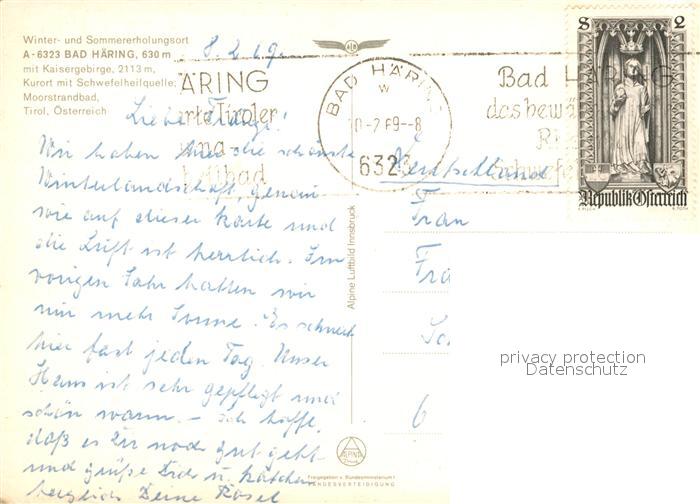 Winter- und Sommererholungsort
A-6323 BAD HÄRING, 630 m
mit Kaisergebirge, 2113 m,
Kurort mit Schwefelheilquelle,
Moorstrandbad,
Tirol, Österreich
8.2.69.
ÄRING
BAD HÄRING
W
10-2.69-8
6323
Bad HÄRING
das bewä
S 2
Republik Österreich
Liebe
Wir haben hier die schönste
Winterlandschaft, genau
wie auf dieser Karte und
die Luft ist herrlich. Im
vorigen Jahr hatten wir
nur mehr Sonne. Es schneit
hier fast jeden Tag. Unser
Haus ist sehr gepflegt und
schön warm. – Ich hoffe,
daß es Dir noch gut geht
und grüße Dich u. Kätchen
herzlich Deine Rosel
Deutschland
Frau
Fra
6
Alpine Luftbild Innsbruck
ALPINA
Freigegeben v. Bundesministerium f.
LANDESVERTEIDIGUNG
privacy protection
Datenschutz